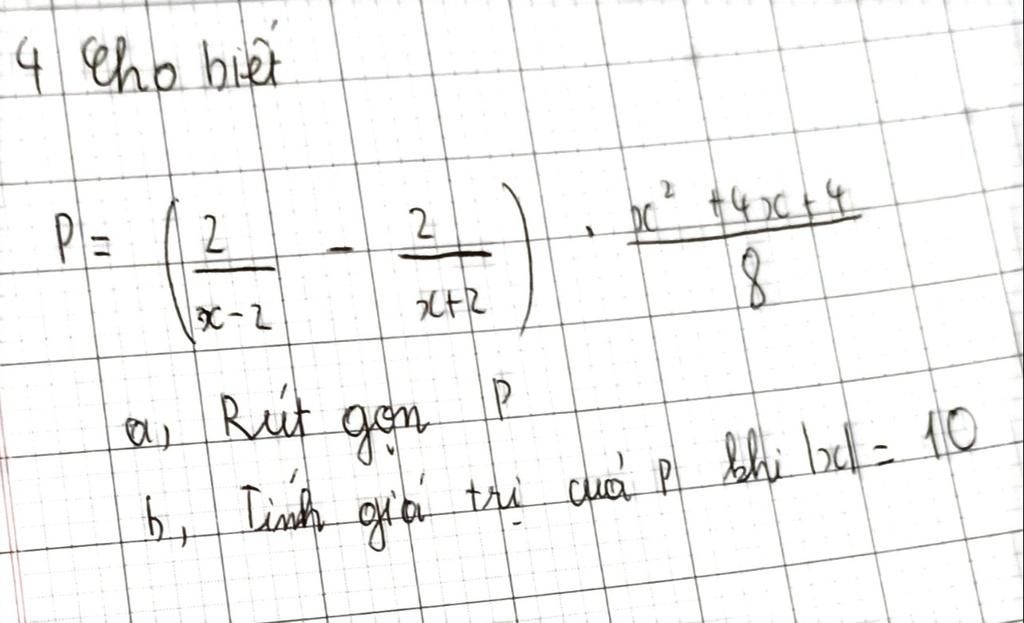 4 Cho biết
P = (2/(x-2) - 2/(x+2)) . (x² + 4x + 4)/8
a, Rút gọn P
b, Tính giá trị của P khi |x| = 10